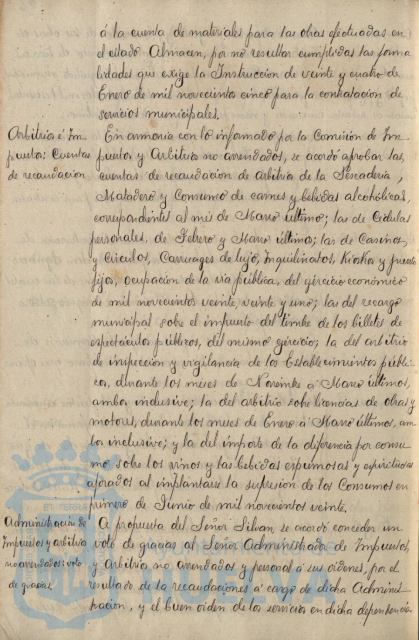 á la cuenta de materiales para las obras efectuadas en
el citado Almacen, por no resultar cumplidas las forma
lidades que exige la Instruccion de veinte y cuatro de
Enero de mil novecientos cinco para la contratacion de
servicios municipales.
Arbitrios é Im
puestos: Cuentas
de recaudacion
En armonia con lo informado por la Comision de Im
puestos y Arbitrios no arrendados, se acordó aprobar las
cuentas de recaudacion de arbitrios de la Pescaderia,
Matadero y Consumo de carnes y bebidas alcohólicas,
correspondientes al mes de Marzo último; las de Cédulas
personales, de Febrero y Marzo últimos; las de Casinos
y Circulos, Carruages de lujo, Inquilinatos, Kioskos y puestos
fijos, ocupacion de la via pública, del ejercicio económico
de mil novecientos veinte, veinte y uno; las del recargo
municipal sobre el impuesto del timbre de los billetes de
espectáculos públicos, del mismo ejercicio; la del arbitrio
de inspeccion y vigilancia de los Establecimientos públi
cos, durante los meses de Noviembre á Marzo últimos,
ambos inclusive; la del arbitrio sobre licencias de obras y
motores, durante los meses de Enero á Marzo últimos, am
bos inclusive; y la del importe de la diferencia por consu
mo sobre los vinos y las bebidas espumosas y espirituosas
aforados al implantarse la supresion de los Consumos en
primero de Junio de mil novecientos veinte.
Administracion de
Impuestos y arbitrios
no arrendados: voto
de gracias
A propuesta del Señor Silvan se acordó conceder un
voto de gracias al Señor Administrador de Impuestos
y Arbitrios no arrendados y personal á sus órdenes, por el
resultado de la recaudaciones á cargo de dicha Adminis
tracion, y el buen orden de los servicios en dicha dependencia.